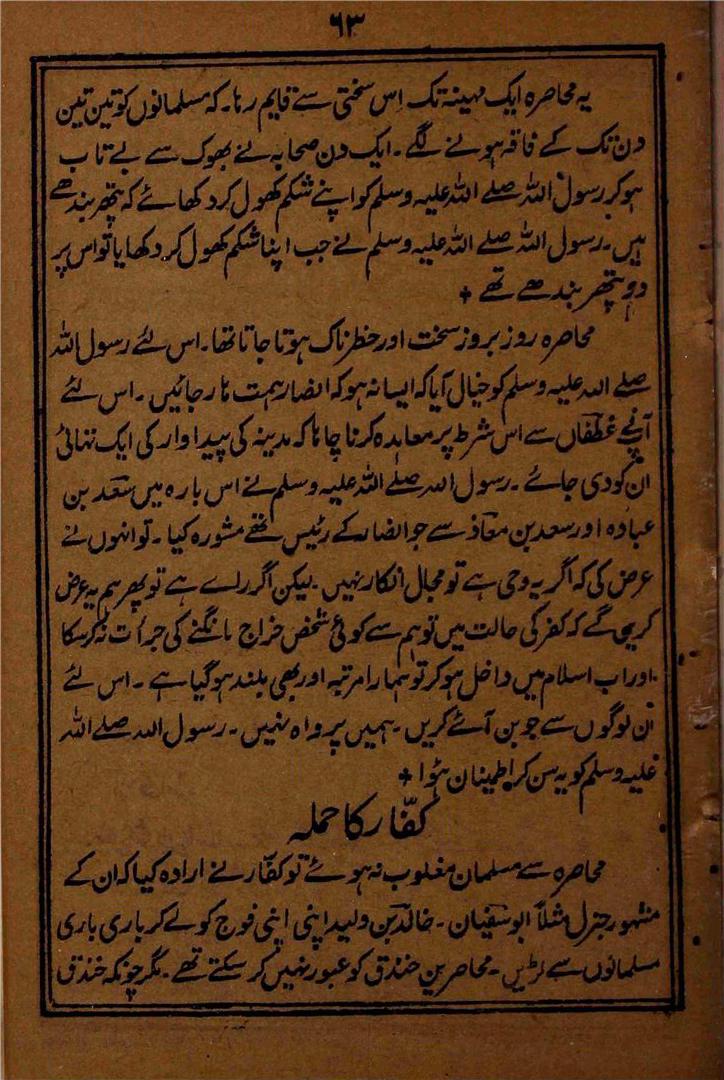 ۶۳
یہ محاصرہ ایک مہینہ تک اِس سختی سے قایم رہا۔ کہ مسلمانوں کو تین تین
دن تک کے فاقہ ہونے لگے۔ ایک دن صحابہ نے بھوک سے بے تاب
ہوکر رسول اللہ صلے اللہ علیہ وسلم کو اپنے شکم کھول کر دکھائے کہ پتھر بندھے
ہیں۔ رسول اللہ صلے اللہ علیہ وسلم نے جب اپنا شکم کھول کر دکھایا تو اس پر
دو پتھر بندھے تھے +
محاصرہ روز بروز سخت اور خطرناک ہوتا جاتا تھا۔ اس لئے رسول اللہ
صلے اللہ علیہ وسلم کو خیال آیا کہ ایسا نہ ہو کہ انصار ہمت ہار جائیں۔ اس لئے
آپنے غطفان سے اس شرط پر معاہدہ کرنا چاہا کہ مدینہ کی پیداوار کی ایک تہائی
ان کو دی جائے۔ رسول اللہ صلے اللہ علیہ وسلم نے اس بارہ میں سعد بن
عبادہ اور سعد بن معاذ سے جو انصار کے رئیس تھے مشورہ کیا۔ تو انہوں نے
عرض کی کہ اگر یہ وحی ہے تو مجال انکار نہیں۔ لیکن اگر رائے ہے تو پھر ہم یہ عرض
کریں گے کہ کفر کی حالت میں تو ہم سے کوئی شخص خراج مانگنے کی جرأت نہ کرسکا
اور اب اسلام میں داخل ہوکر تو ہمارا مرتبہ اور بھی بلند ہوگیا ہے۔ اس لئے
ان لوگوں سے جو بن آئے کریں۔ ہمیں پرواہ نہیں۔ رسول اللہ صلے اللہ
علیہ وسلم کو یہ سن کر اطمینان ہؤا +
کفّار کا حملہ
محاصرہ سے مسلمان مغلوب نہ ہوئے تو کفّار نے ارادہ کیا کہ ان کے
مشہور جنرل مثلاً ابوسفیان۔ خالد بن ولید اپنی اپنی فوج کو لے کر باری باری
مسلمانوں سے لڑیں۔ محاصرین خندق کو عبور نہیں کرسکتے تھے۔ مگر چونکہ خندق